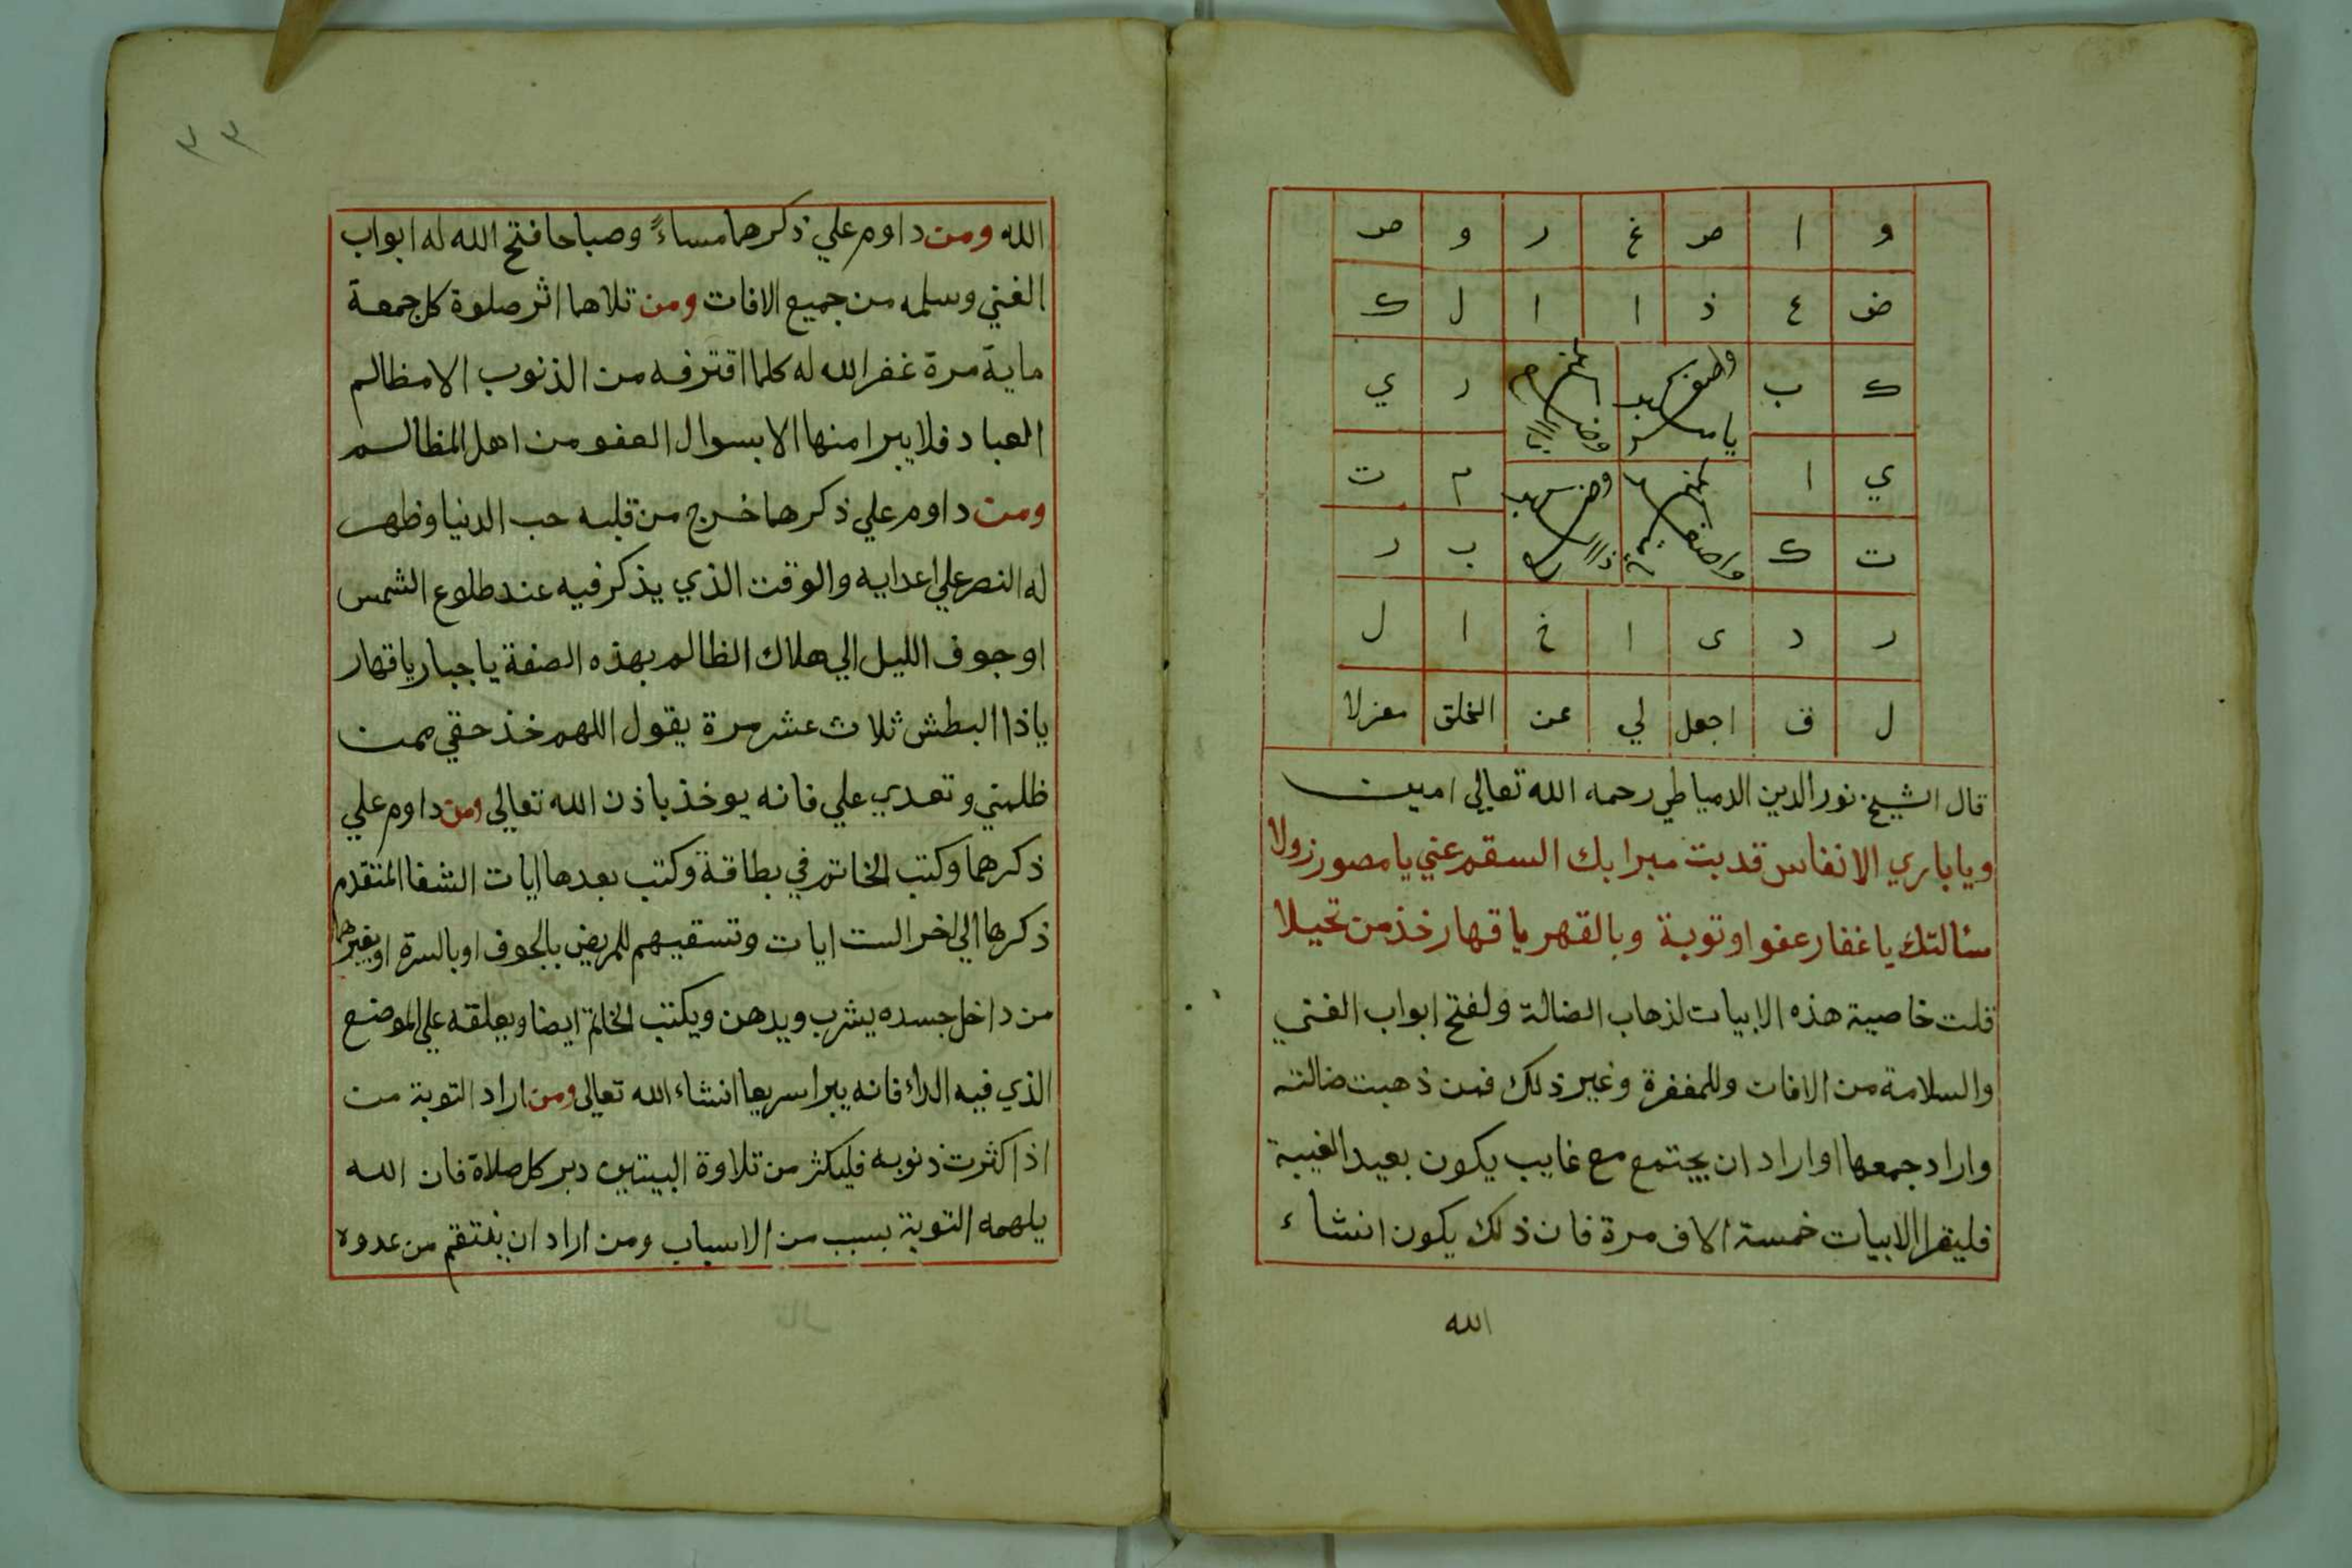 و ا صر غ ر و صر
ض ع ذ ا ا ل ك
ك ب ر ي
ي ا م ت
ت ك ب ر
ر د ى ا خ ا ل
ل ق اجعل لي عن الخلق معزلا
قال الشيخ نور الدين الدمياطي رحمه الله تعالي امين
ويا باري الانفاس قد بت مبرا بك السقم عني يا مصور زولا
سئالتك يا غفار عفوا وتوبة وبالقهر يا قهار خذ من تحيلا
قلت خاصية هذه الابيات لذهاب الضالة ولفتح ابواب الغني
والسلامة من الافات وللمغفرة وغير ذلك فمن ذهبت ضالته
واراد جمعها او اراد ان يجتمع مع غايب يكون بعيد الغيبة
فليقرا الابيات خمسة الاف مرة فان ذلك يكون انشاء
الله
٣٣
الله ومن داوم علي ذكرهما مساءً وصباحا فتح الله له ابواب
الغني وسلمه من جميع الافات ومن تلاهما اثر صلوة كل جمعة
ماية مرة غفر الله له كلما اقترفه من الذنوب الا مظالم
العباد فلا يبرا منها الا بسوال العفو من اهل المظالم
ومن داوم علي ذكرهما خرج من قلبه حب الدنيا وظهر
له النصر علي اعدايه والوقت الذي يذكر فيه عند طلوع الشمس
او جوف الليل الي هلاك الظالم بهذه الصفة يا جبار يا قهار
يا ذا البطش ثلاث عشر مرة يقول اللهم خذ حقي ممن
ظلمني وتعدي علي فانه يوخذ باذن الله تعالي ومن داوم علي
ذكرهما وكتب الخاتم في بطاقة وكتب بعدها ايات الشفا المتقدم
ذكرها الي اخر الست ايات وتسقيهم للمريض بالجوف او بالسرة او بغيرهما
من داخل جسده يشرب ويدهن ويكتب الخاتم ايضا ويعلقه علي الموضع
الذي فيه الداء فانه يبرا سريعا انشاء الله تعالى ومن اراد التوبة من
اذا كثرت ذنوبه فليكثر من تلاوة البيتين دبر كل صلاة فان الله
يلهمه التوبة بسبب من الاسباب ومن اراد ان ينتقم من عدوه